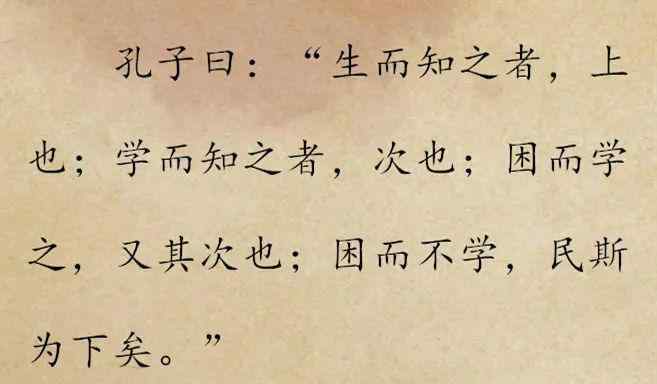 孔子曰：“生而知之者，上
也；学而知之者，次也；困而学
之，又其次也；困而不学，民斯
为下矣。”